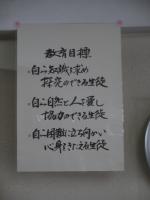 教育目標
・自ら知識を求め
探究のできる生徒
・自ら自然と人を愛し
協力のできる生徒
・自ら困難に立ち向かい
心身をきたえる生徒